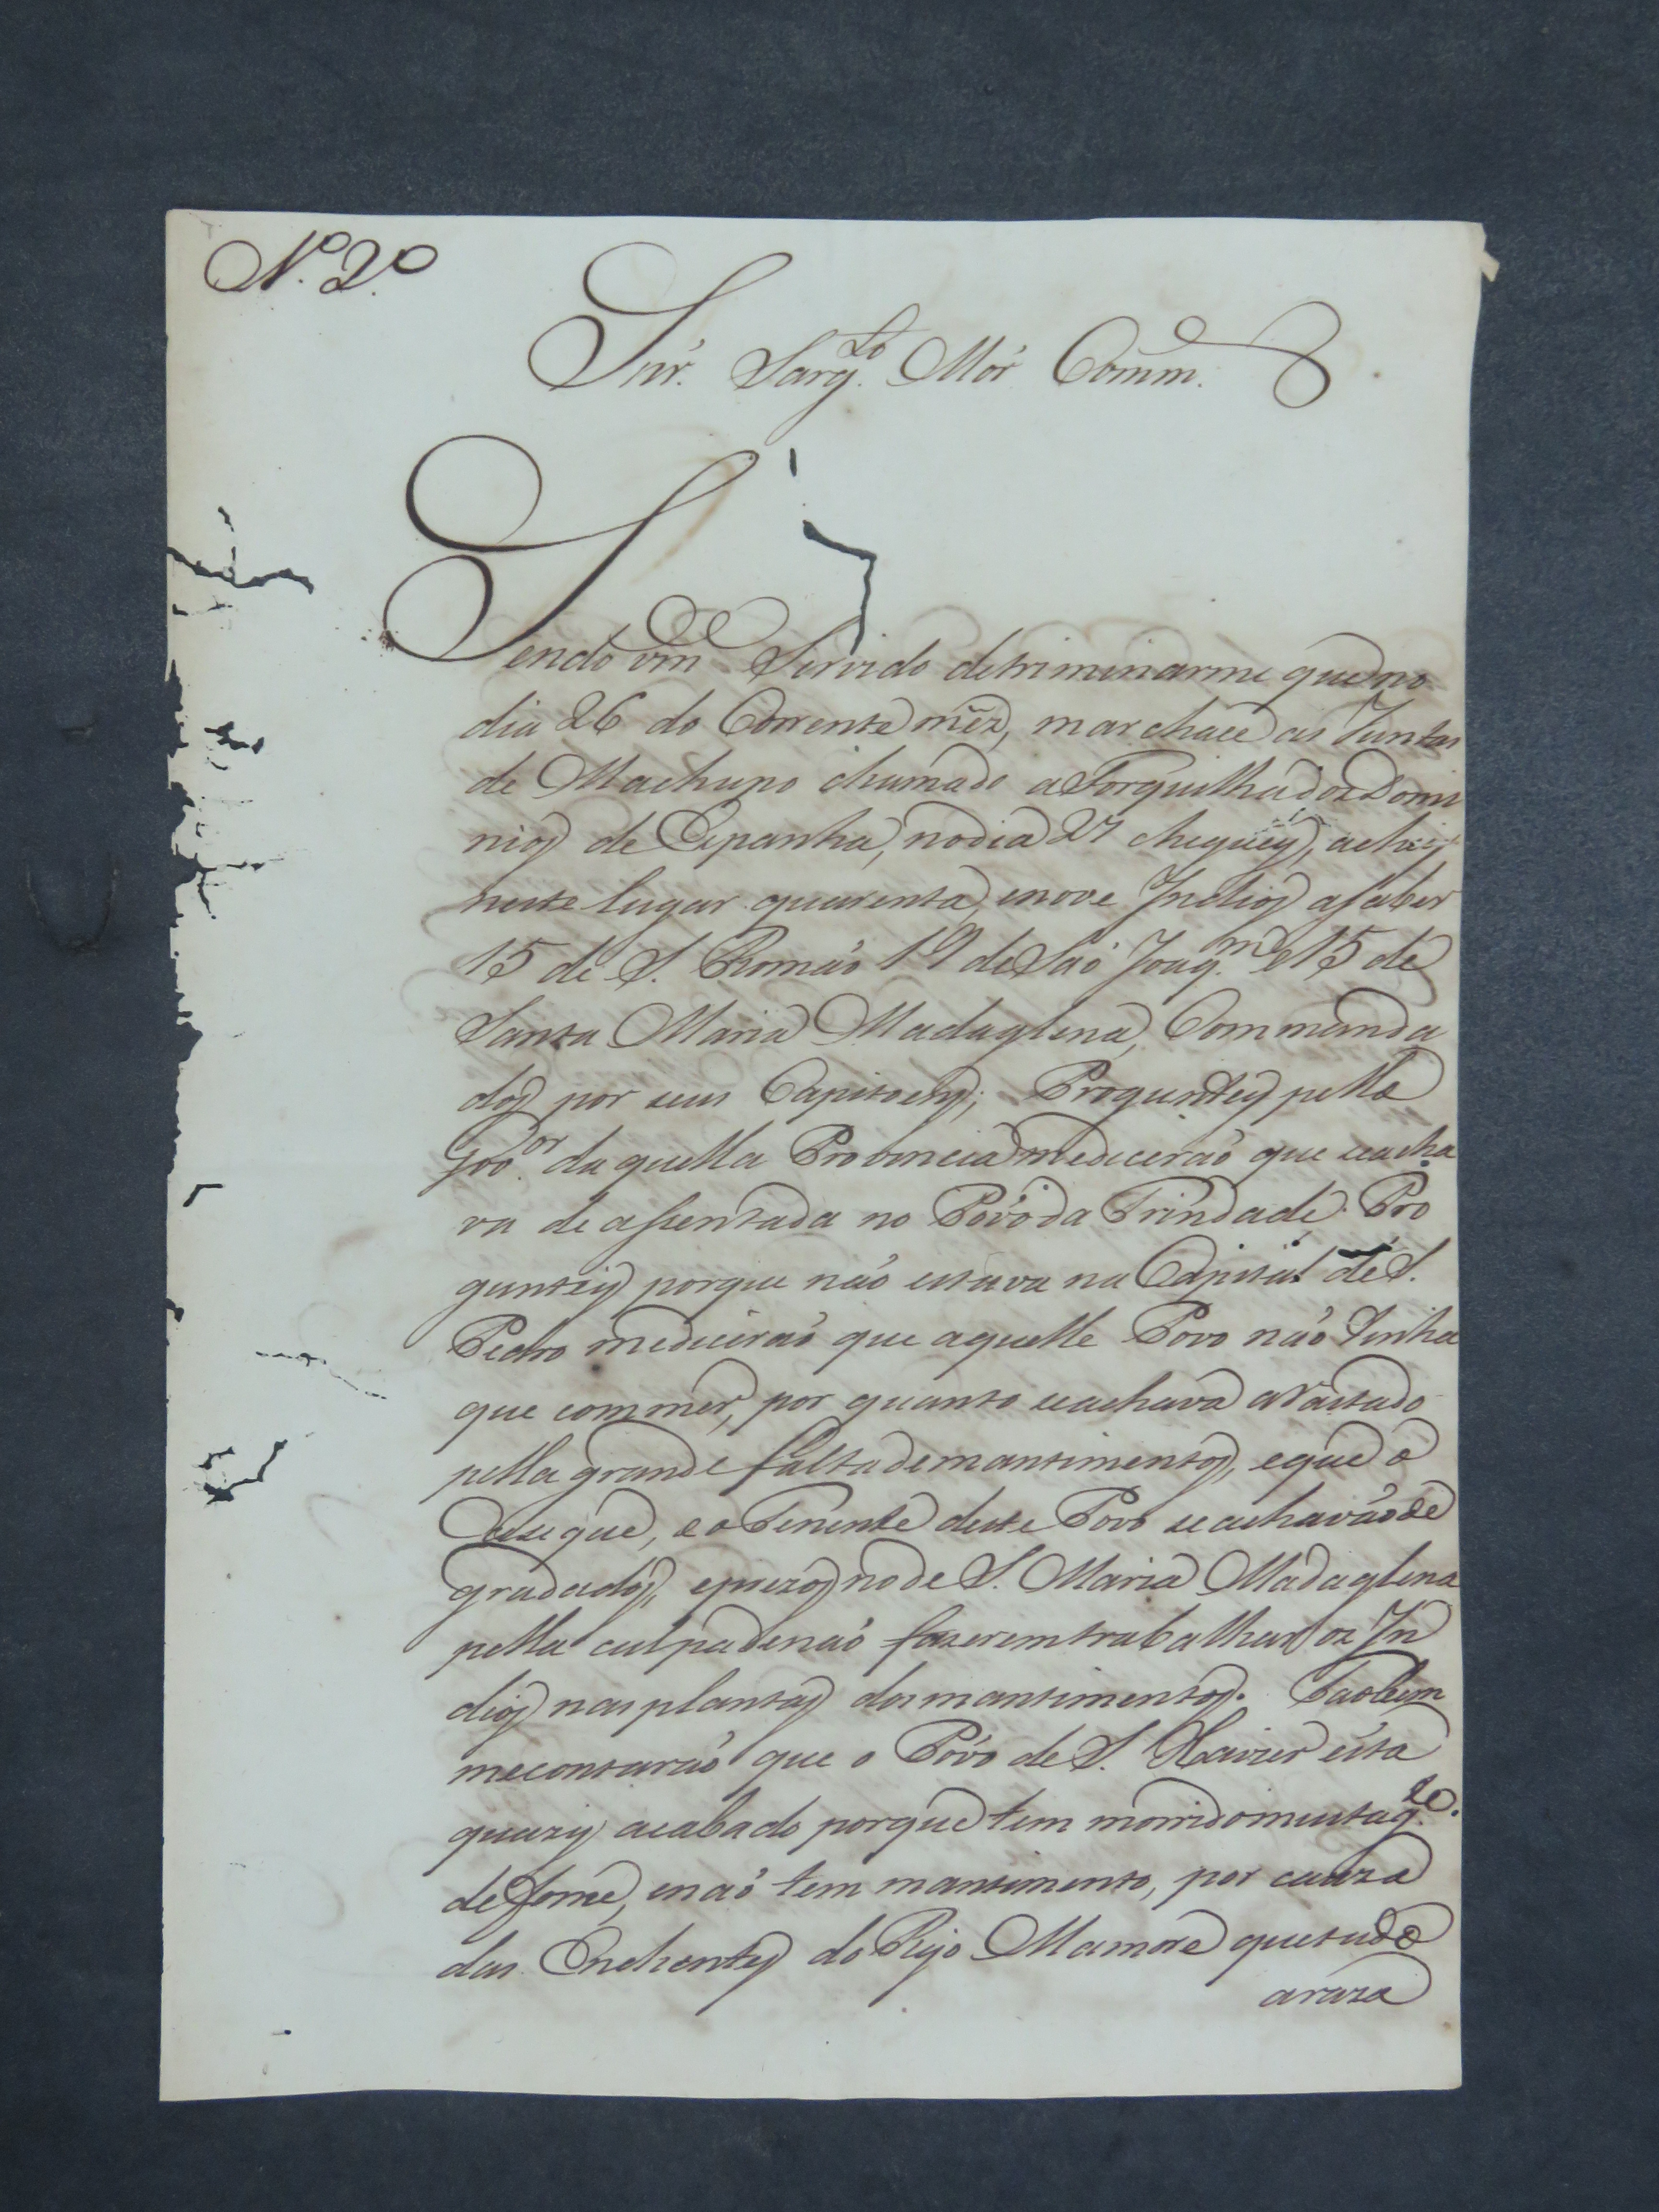 N.º 2.º
Snr. Sarg.to Mór Comm.
Sendo vm Servido detriminarme que no
dia 26 do Corrente mêz, marchace as Juntas
de Machupo chamado a Forquilha dos Domi
nios de Espanha, no dia 27 cheguey, achey
neste lugar quarenta, e nove Indios a saber
15 de S. Romão 19 de São Joaq.m e 15 de
Santa Maria Madaglena, Commanda
dos por seus Capitoens; Proguntey pello
Gov.or da quella Provincia me diceraõ que se acha
va de assentada no Povo da Trindade. Pro
guntey porque não estava na Capital de S.
Pedro me diceraõ que aquelle Povo não tinha
que commer, por quanto se achava avastado
pella grande falta de mantimentos, e que o
Casique, e o Tenente deste Povo se achavão de
gradados, e prezos no de S. Maria Madaglena
pella culpa de naõ fazerem trabalhar os In
dios nas plantas dos mantimentos. Taobem
me contaraõ que o Povo de S. Xavier esta
quazy acabado porque tem morrido muita g.te
de fome, e naõ tem mantimento, por cauza
das Enchentes do Rijo Mamore que tudo
araza